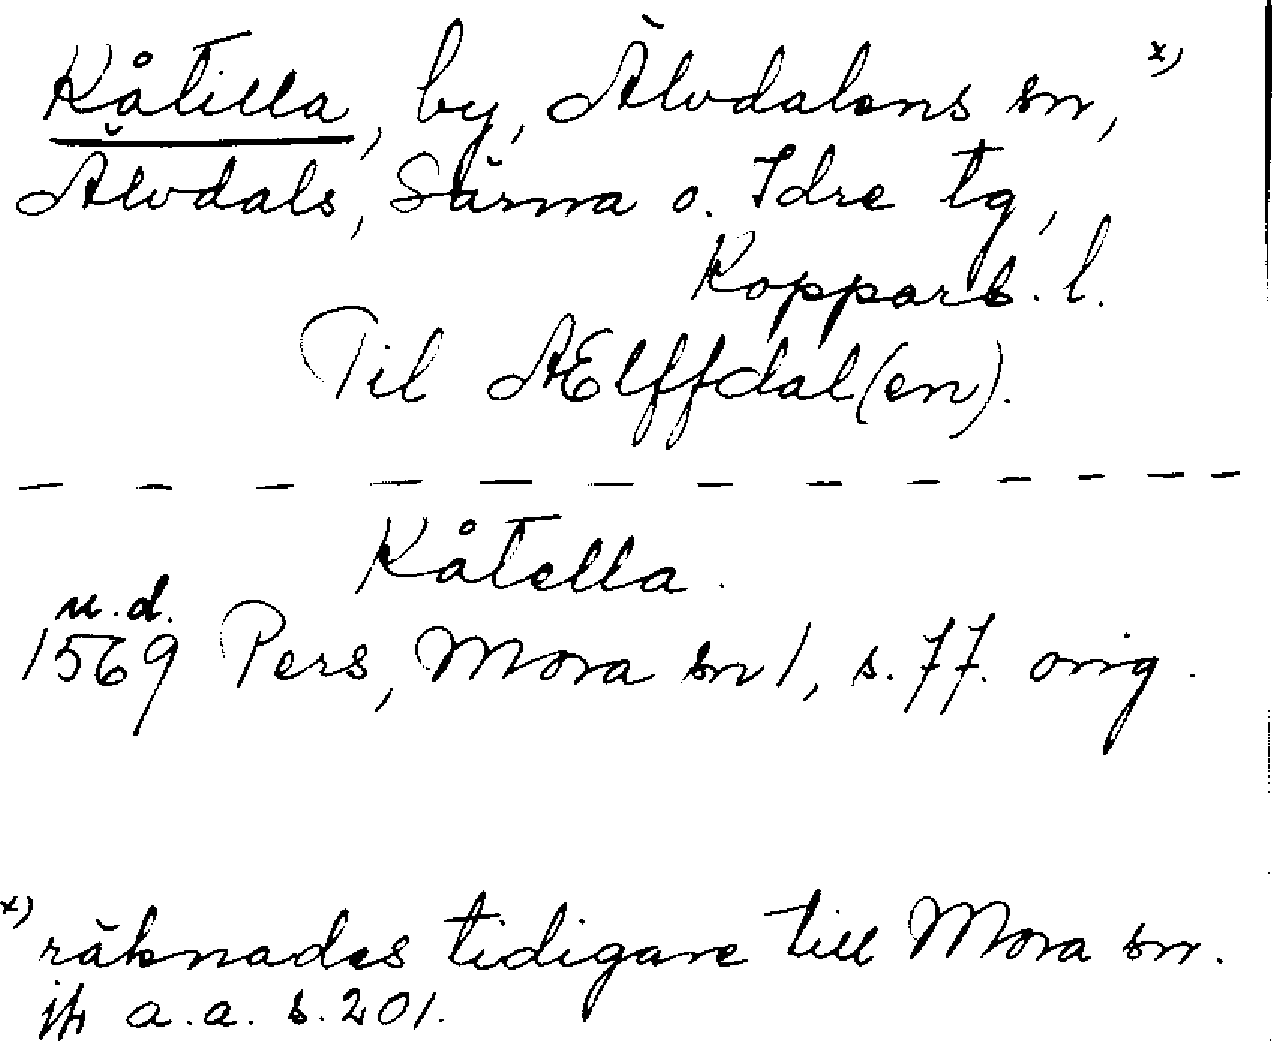 Kåtilla, by, Älvdalens sn, x)
Älvdals, Särna o. Idre tg,
Kopparb. l.
Til AElffdal(en).
Kåtella.
u.d.
1569 Pers, Mora sn 1, s. 77. orig.
x) räknades tidigare till Mora sn.
jfr a.a. s. 201.